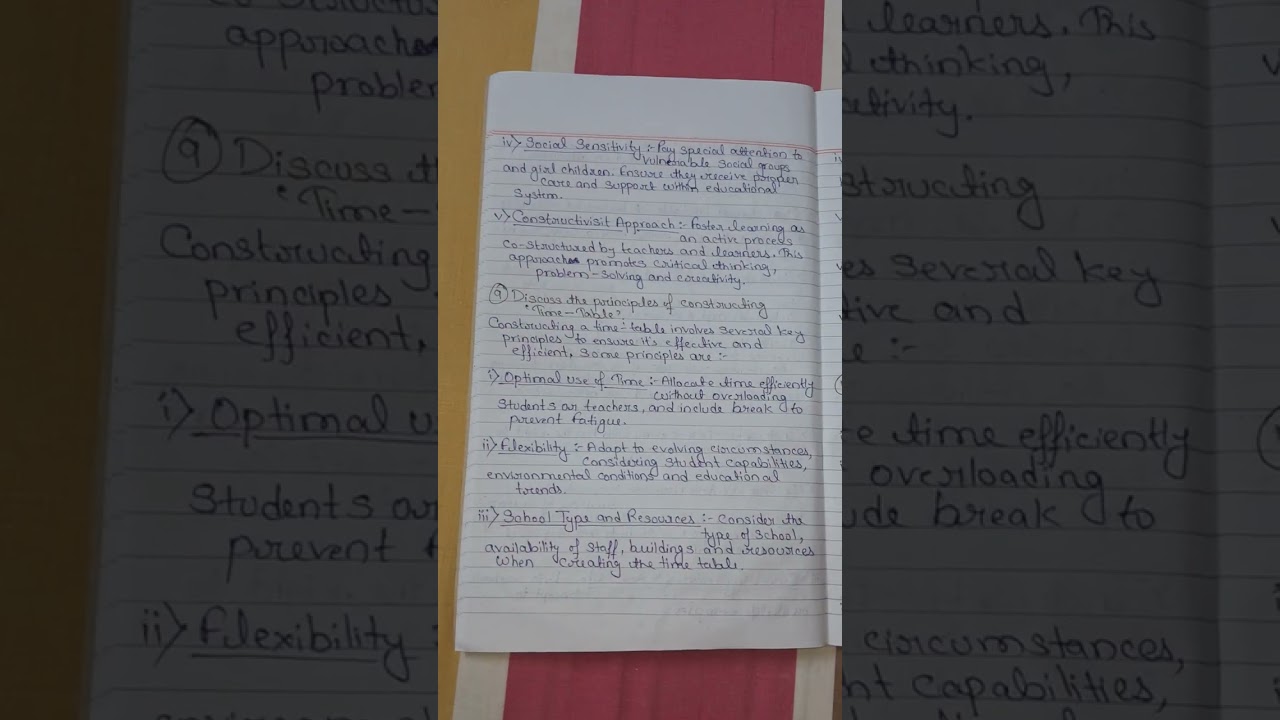 iv> Social Sensitivity :- Pay special attention to
vulnerable social groups
and girl children. Ensure they receive proper
care and support within educational
System.
v> Constructivisit Approach :- Foster learning as
an active process
co-structured by teachers and learners. This
approach promotes critical thinking,
problem-solving and creativity.
9 Discuss the principles of constructing
"Time-Table"
Constructing a time-table involves several key
principles to ensure it's effective and
efficient, Some principles are :-
i> Optimal use of Time :- Allocate time efficiently
without overloading
Students or teachers, and include break to
prevent fatigue.
ii> Flexibility :- Adapt to evolving circumstances,
considering student capabilities,
environmental conditions and educational
trends.
iii> School Type and Resources :- Consider the
type of school,
availability of staff, buildings and resources
when creating the time table.